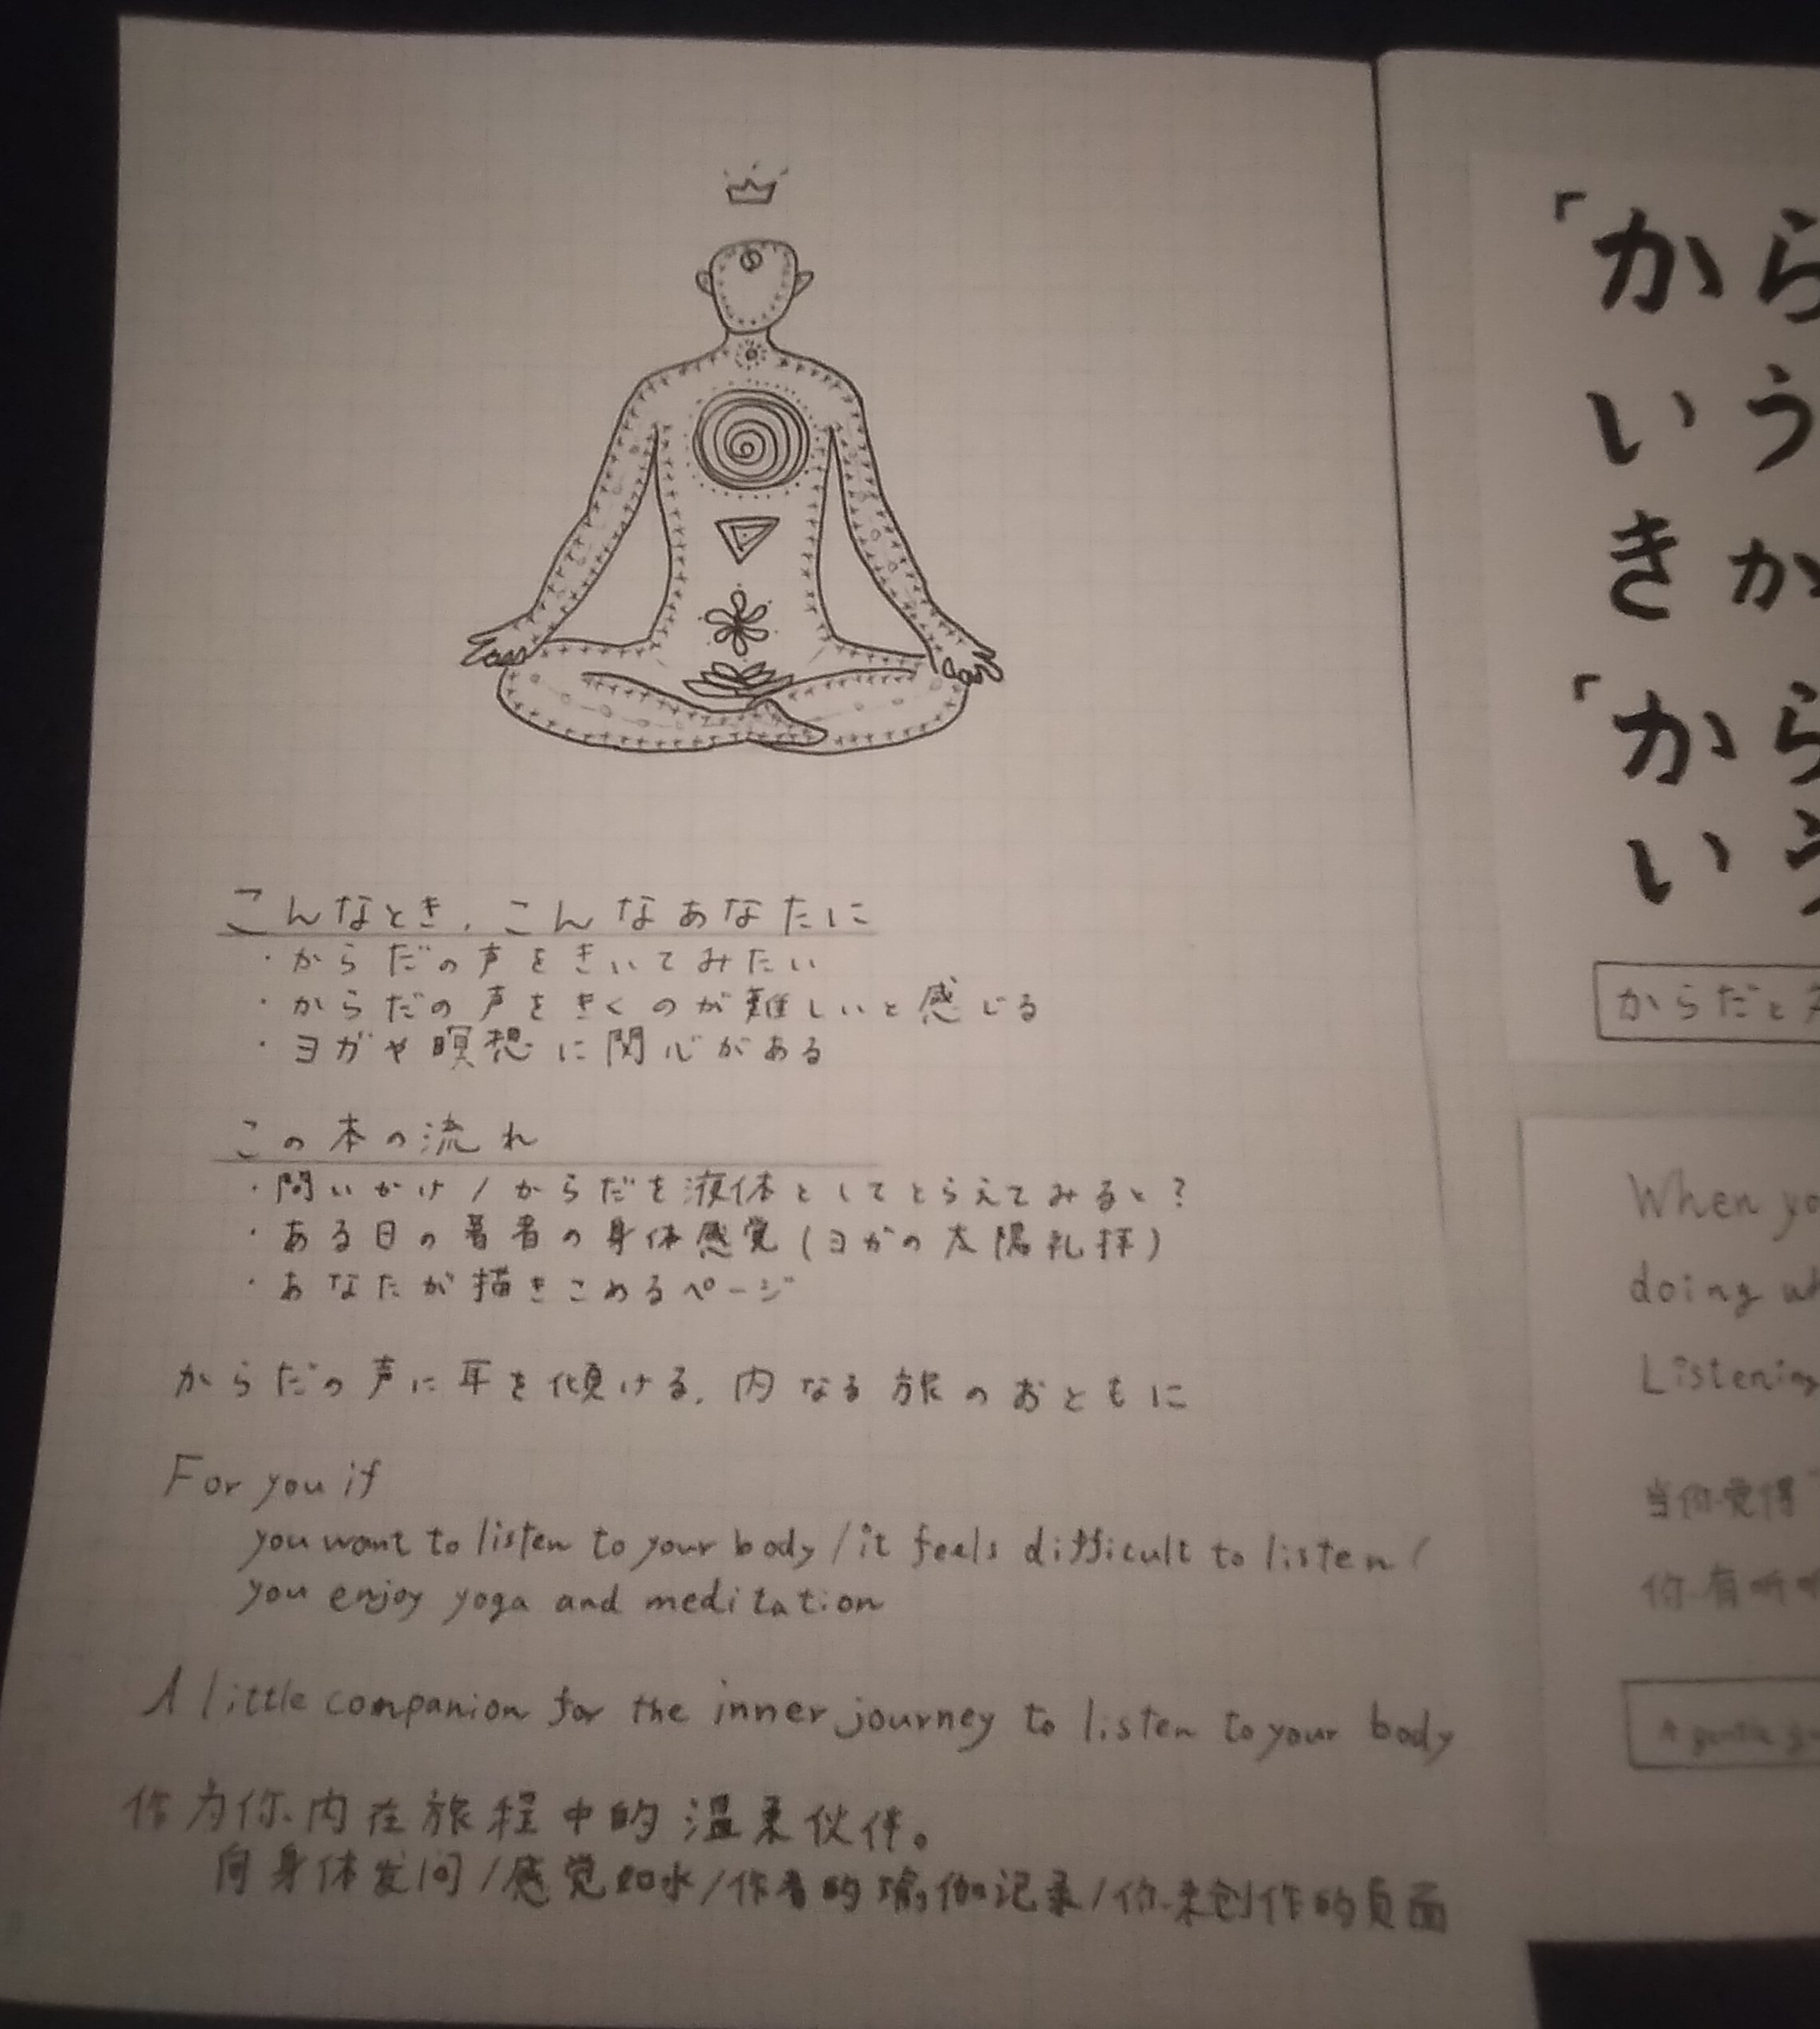 こんなとき、こんなあなたに
・からだの声をきいてみたい
・からだの声をきくのが難しいと感じる
・ヨガや瞑想に関心がある
この本の流れ
・問いかけ/からだを液体としてとらえてみると？
・ある日の著者の身体感覚(ヨガの太陽礼拝)
・あなたが描きこめるページ
からだの声に耳を傾ける、内なる旅のおともに
For you if
you want to listen to your body/it feels difficult to listen/
you enjoy yoga and meditation
A little companion for the inner journey to listen to your body
作为你内在旅程中的温柔伙伴。
向身体发问/感觉如水/作者的瑜伽记录/你来创作的页面
「から
いう
きか
「から
い
からだと
When yo
doing wh
Listening
当你觉得
你有听
A gentle g